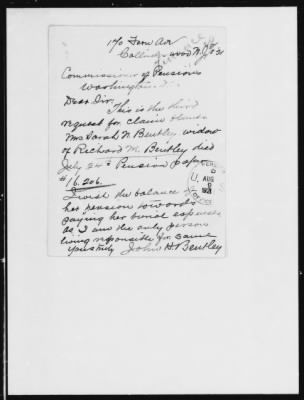 170 Fern Ave
Collingswood N.J.
Commissioner of Pensions
Washington
Dear Sir.
This is the third
request for claim blanks
Mrs Sarah N Bentley widow
of Richard M. Bentley died
July 24th Pension paper
# 16.206.
I wish the balance of
her pension towards
paying her burial expenses
as I am the only person
living responsible for same
yours truly John H. Bentley
U.
AUG